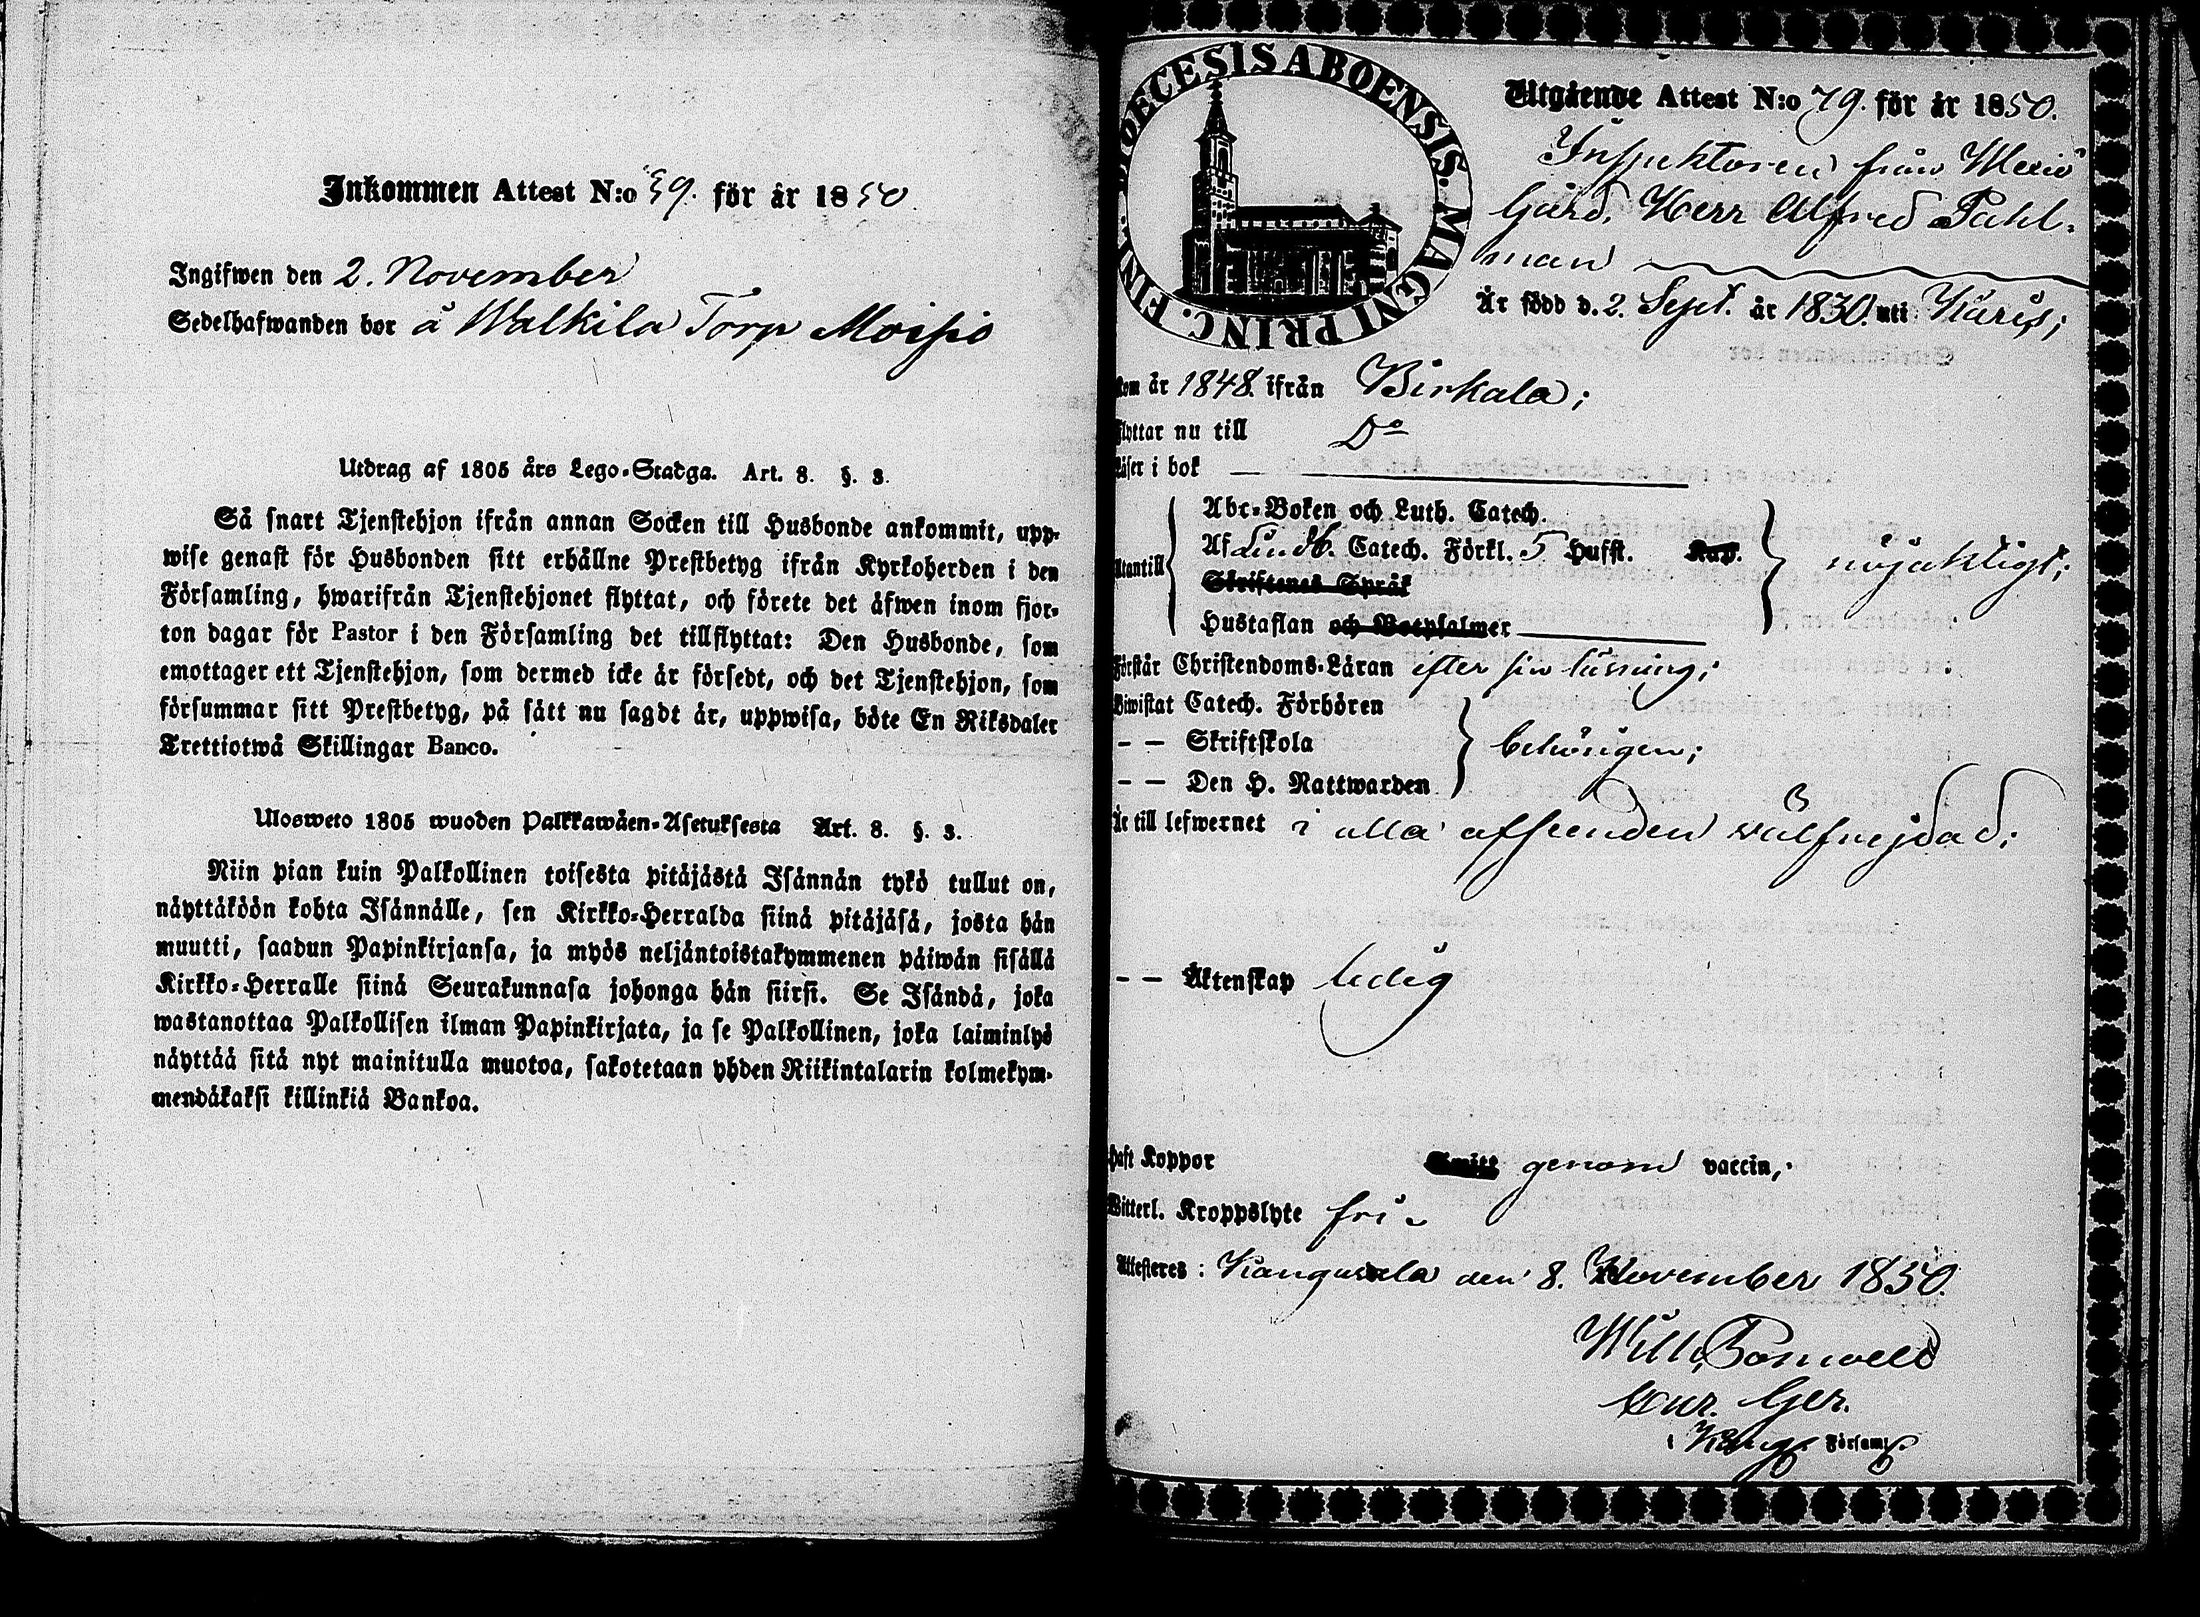 Inkommen Attest N:o 39. för år 1850
Ingifwen den 2. November
Sedelhafwanden bor å Walkila Torp Moisio
Utdrag af 1805 års Lego-Stadga. Art. 8. §. 3.
Så snart Tjenstehjon ifrån annan Socken till Husbonde ankommit, upp-
wise genast för Husbonden sitt erhållne Prestbetyg ifrån Kyrkoherden i den
Församling, hwarifrån Tjenstehjonet flyttat, och förete det äfwen inom fjor-
ton dagar för Pastor i den Församling det tillflyttat: Den Husbonde, som
emottager ett Tjenstehjon, som dermed icke är försedt, och det Tjenstehjon, som
försummar sitt Prestbetyg, på sätt nu sagdt är, uppwisa, böte En Riksdaler
Trettiotwå Skillingar Banco.
Ulosweto 1805 wuoden Palkkawäen-Asetuksesta Art. 8. §. 3.
Niin pian kuin Palkollinen toisesta pitäjästä Isännän tykö tullut on,
näyttäköön kohta Isännälle, sen Kirkko-Herralda siinä pitäjäsä, josta hän
muutti, saadun Papinkirjansa, ja myös neljäntoistakymmenen päiwän sisällä
Kirkko-Herralle siinä Seurakunnasa johonga hän siirsi. Se Isändä, joka
wastanottaa Palkollisen ilman Papinkirjata, ja se Palkollinen, joka laiminlyö
näyttää sitä nyt mainitulla muotoa, sakotetaan yhden Riikintalarin kolmekym-
mendäkaksi killinkiä Bankoa.
DIOECESIS ABOENSIS. MAGNI PRINC. FINL.
Utgående Attest N:o 79. för år 1850.
Inspektoren från Wääxiö
Gård, Herr Alfred Pahl-
man
Är född d. 2. Sept. år 1830. uti Karis;
kom år 1848. ifrån Birkala;
Flyttar nu till Do
Läser i bok
Abc-Boken och Luth. Catech.
Utantill Af Lindb. Catech. Förkl. 5 Hufst. Kap. nöjaktigt;
Skriftenes Språk
Hustaflan och Botpsalmer
Förstår Christendoms-Läran efter sin läsning;
Biwistat Catech. Förhören
– – Skriftskola behörigen;
– – Den H. Nattwarden
Är till lefwernet i alla afseenden wälfrejdad;
– – Äktenskap ledig
Haft Koppor genom vaccin;
Witterl. Kroppslyte fri.
Attesteras: Kangasala den 8. November 1850.
Wilh.
Cur. Ger.
i Kang. Församl.